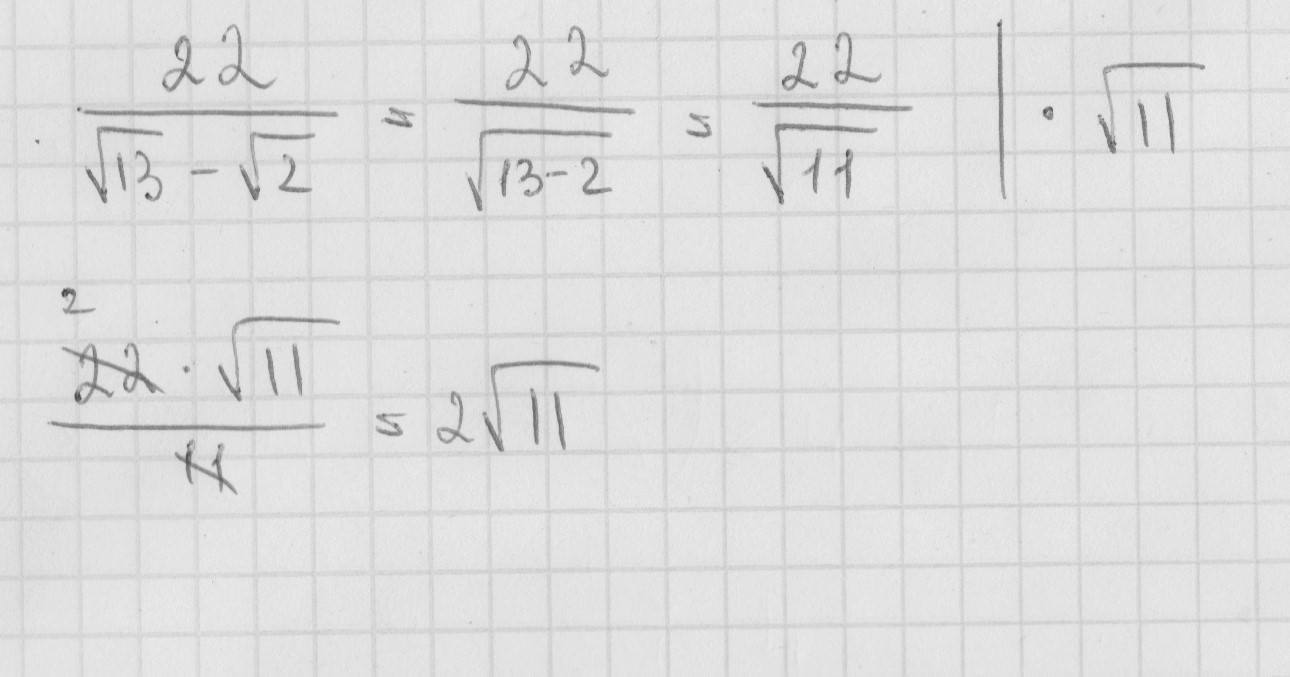 22/(√13 - √2) = 22/√(13-2) = 22/√11 | · √11
2
22 · √11/11 = 2√11